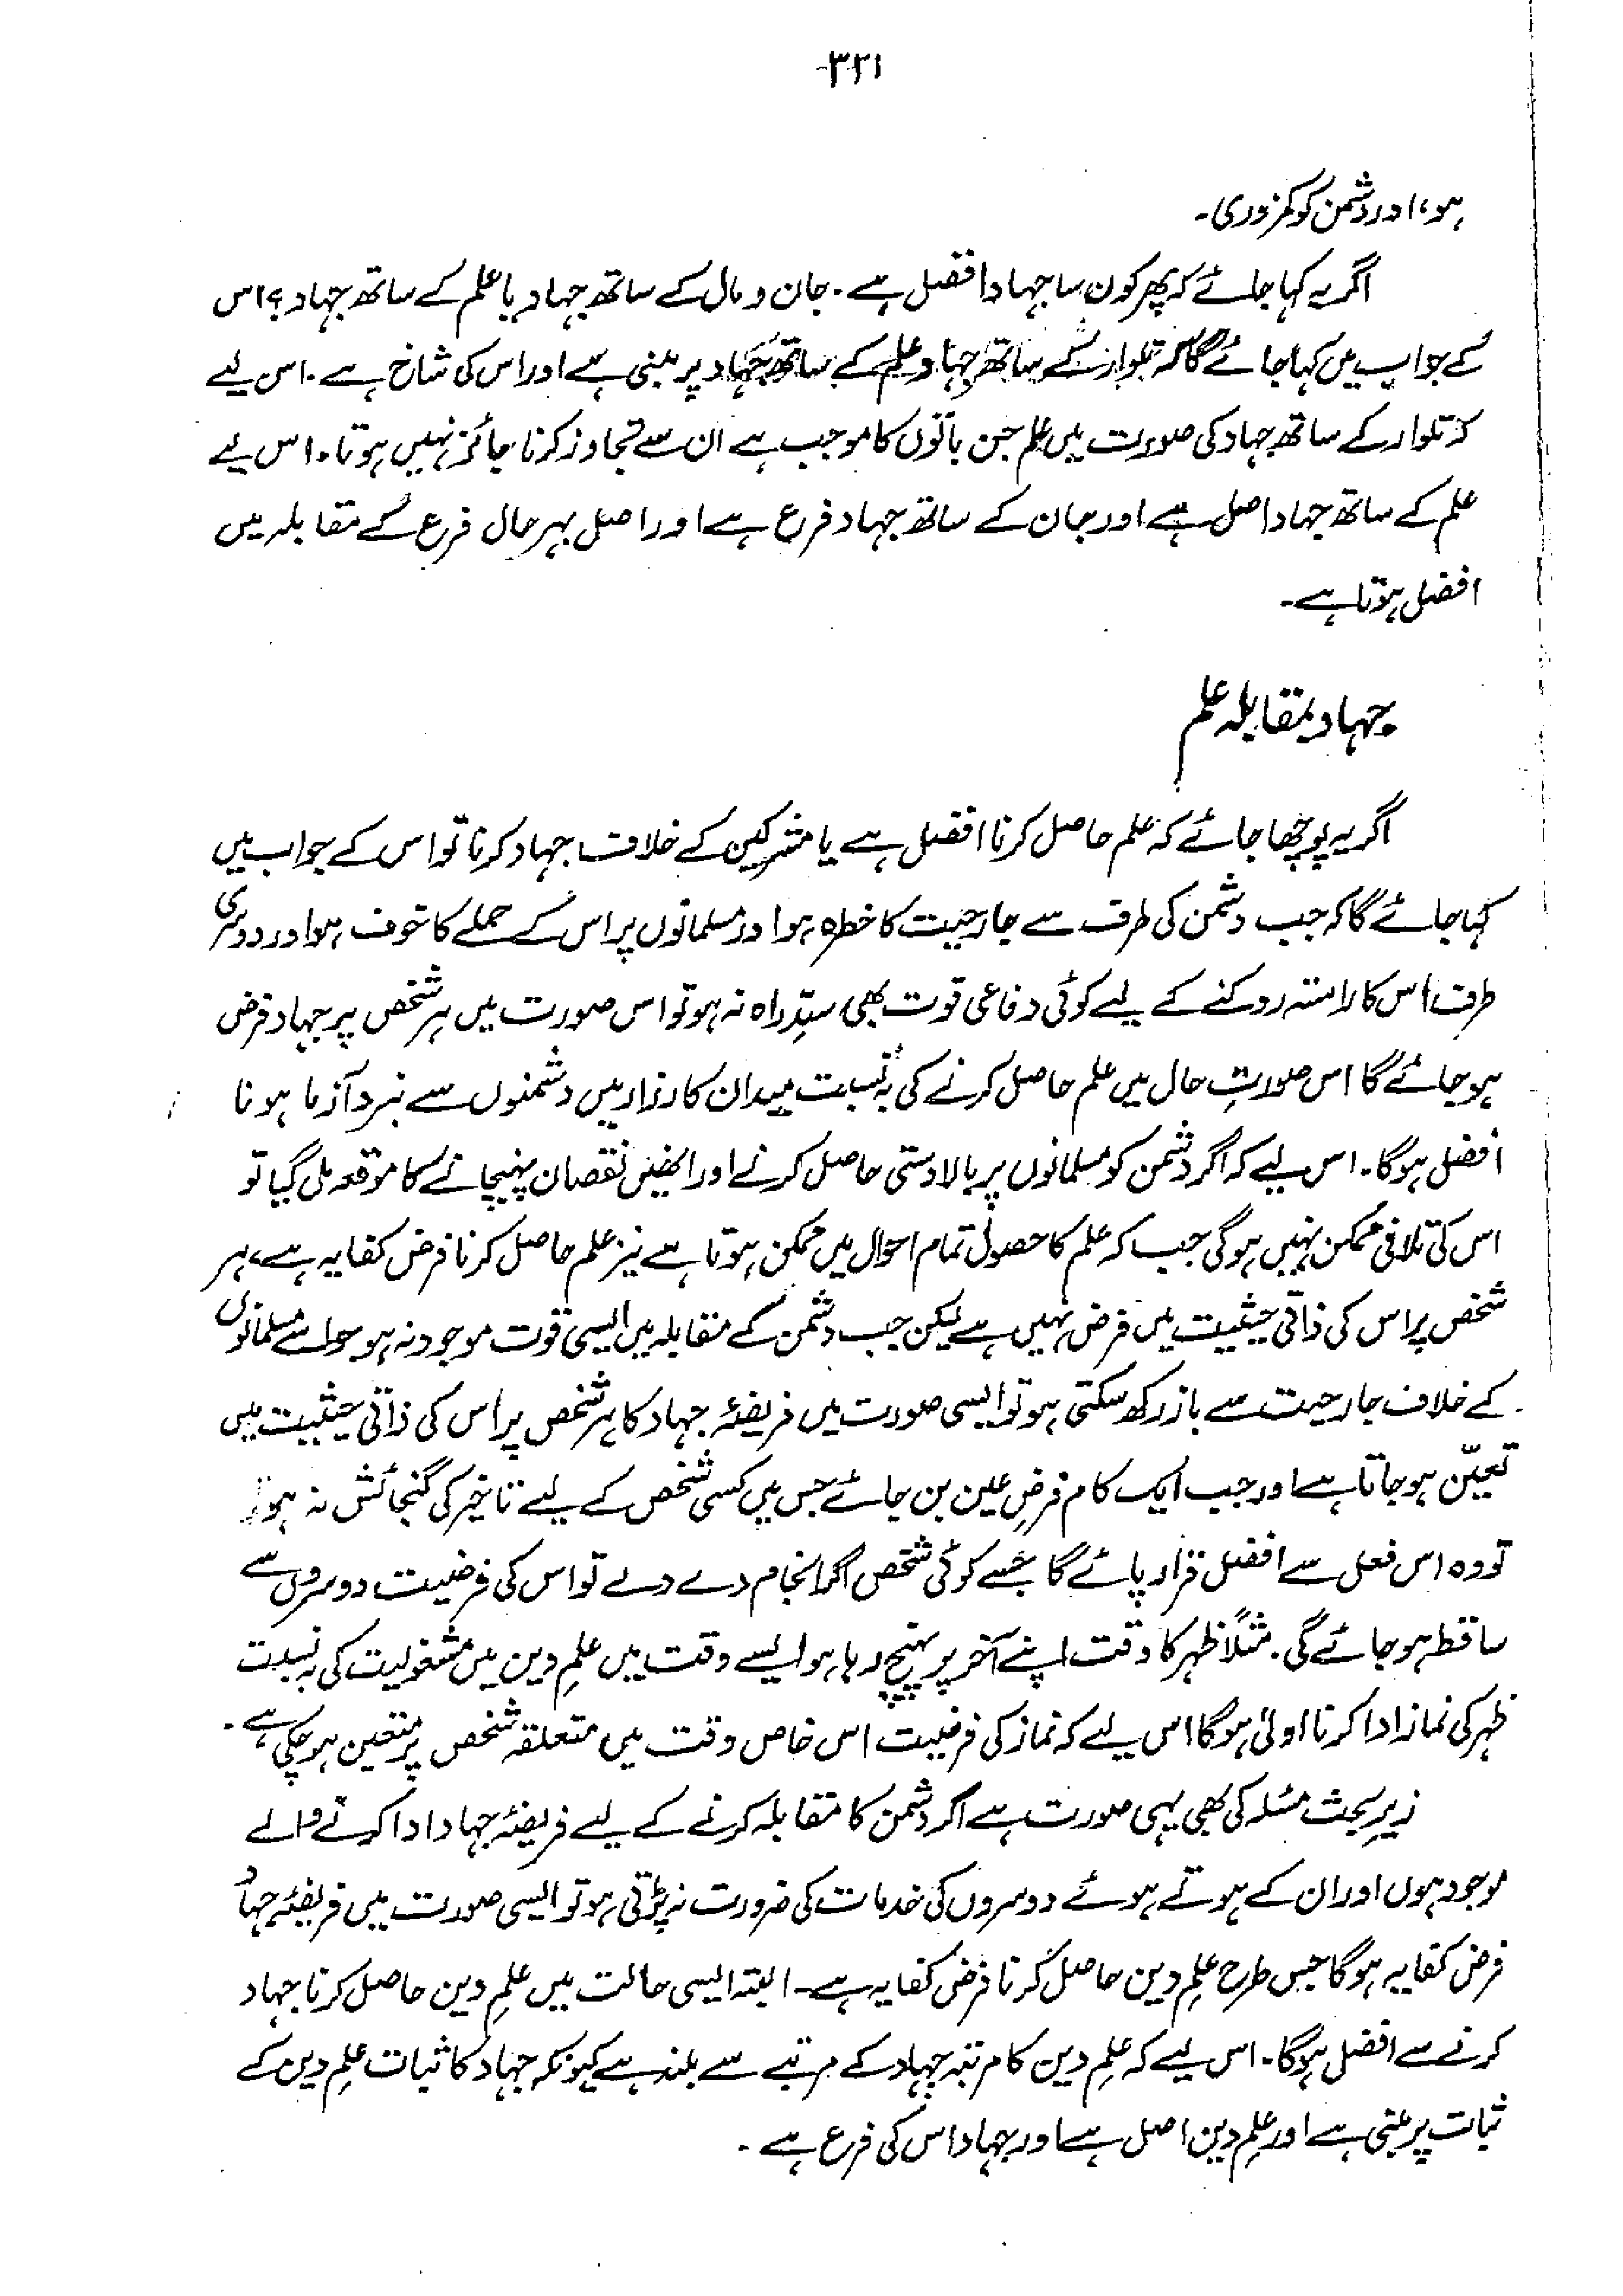 ۳۲۱
ہو، اور دشمن کو کمزوری۔
اگر یہ کہا جائے کہ پھر کون سا جہاد افضل ہے۔ جان و مال کے ساتھ جہاد یا علم کے ساتھ جہاد؟ اس
کے جواب میں کہا جائے گا کہ تلوار کے ساتھ جہاد علم کے ساتھ جہاد پر مبنی ہے اور اس کی شاخ ہے۔ اس لیے
کہ تلوار کے ساتھ جہاد کی صورت میں علم جن باتوں کا موجب ہے ان سے تجاوز کرنا جائز نہیں ہوتا۔ اس لیے
علم کے ساتھ جہاد اصل ہے اور جان کے ساتھ جہاد فرع ہے اور اصل بہرحال فرع کے مقابلہ میں
افضل ہوتا ہے۔
جہاد بمقابلہ علم
اگر یہ پوچھا جائے کہ علم حاصل کرنا افضل ہے یا مشرکین کے خلاف جہاد کرنا تو اس کے جواب میں
کہا جائے گا کہ جب دشمن کی طرف سے جارحیت کا خطرہ ہو اور مسلمانوں پر اس کے حملے کا خوف ہو اور دوسری
طرف اس کا راستہ روکنے کے لیے کوئی دفاعی قوت بھی سدِّ راہ نہ ہو تو اس صورت میں ہر شخص پر جہاد فرض
ہو جائے گا اس صورتِ حال میں علم حاصل کرنے کی بہ نسبت میدان کارزار میں دشمنوں سے نبرد آزما ہونا
افضل ہوگا۔ اس لیے کہ اگر دشمن کو مسلمانوں پر بالادستی حاصل کرنے اور انھیں نقصان پہنچانے کا موقعہ مل گیا تو
اس کی تلافی ممکن نہیں ہوگی جب کہ علم کا حصول تمام احوال میں ممکن ہوتا ہے نیز علم حاصل کرنا فرض کفایہ ہے، ہر
شخص پر اس کی ذاتی حیثیت میں فرض نہیں ہے لیکن جب دشمن کے مقابلہ میں ایسی قوت موجود نہ ہو جو اسے مسلمانوں
کے خلاف جارحیت سے باز رکھ سکتی ہو تو ایسی صورت میں فریضۂ جہاد کا ہر شخص پر اس کی ذاتی حیثیت میں
تعیّن ہو جاتا ہے اور جب ایک کام فرضِ عین بن جائے جس میں کسی شخص کے لیے تاخیر کی گنجائش نہ ہو
تو وہ اس فعل سے افضل قرار پائے گا جسے کوئی شخص اگر انجام دے دے تو اس کی فرضیت دوسروں سے
ساقط ہو جائے گی۔ مثلاً ظہر کا وقت اپنے آخر پر پہنچ رہا ہو ایسے وقت میں علمِ دین میں مشغولیت کی بہ نسبت
ظہر کی نماز ادا کرنا اولیٰ ہوگا اس لیے کہ نماز کی فرضیت اس خاص وقت میں متعلقہ شخص پر متعین ہو چکی ہے۔
زیرِ بحث مسئلہ کی بھی یہی صورت ہے اگر دشمن کا مقابلہ کرنے کے لیے فریضۂ جہاد ادا کرنے والے
موجود ہوں اور ان کے ہوتے ہوئے دوسروں کی خدمات کی ضرورت نہ پڑتی ہو تو ایسی صورت میں فریضۂ جہاد
فرض کفایہ ہوگا جس طرح علمِ دین حاصل کرنا فرض کفایہ ہے۔ البتہ ایسی حالت میں علمِ دین حاصل کرنا جہاد
کرنے سے افضل ہوگا۔ اس لیے کہ علمِ دین کا مرتبہ جہاد کے مرتبے سے بلند ہے کیونکہ جہاد کا ثبات علمِ دین کے
ثبات پر مبنی ہے اور علمِ دین اصل ہے اور جہاد اس کی فرع ہے۔